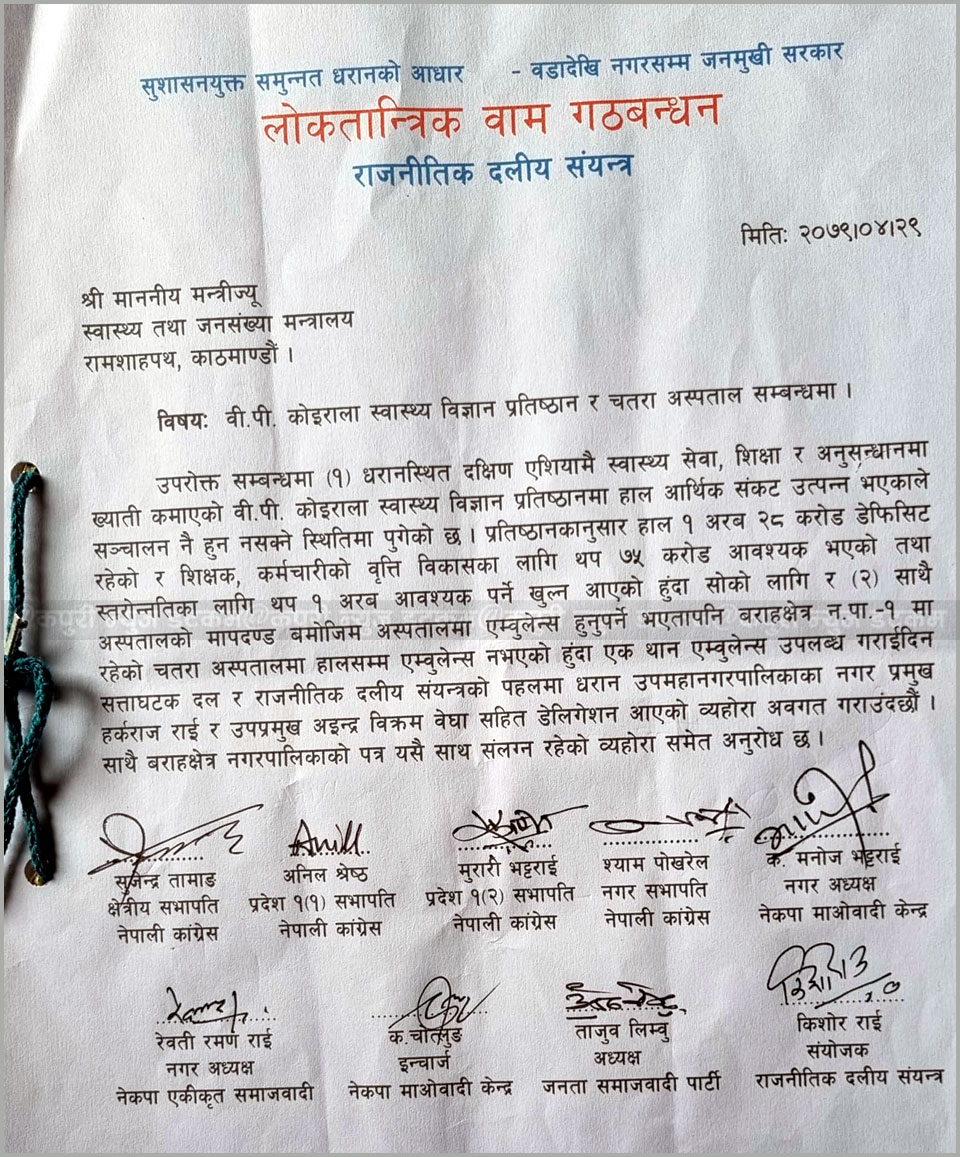 सुशासनयुक्त समुन्नत धरानको आधार - वडादेखि नगरसम्म जनमुखी सरकार
लोकतान्त्रिक वाम गठबन्धन
राजनीतिक दलीय संयन्त्र
मितिः २०७९।०४।२९
श्री माननीय मन्त्रीज्यू
स्वास्थ्य तथा जनसंख्या मन्त्रालय
रामशाहपथ, काठमाण्डौं ।
विषयः वी.पी. कोइराला स्वास्थ्य विज्ञान प्रतिष्ठान र चतरा अस्पताल सम्बन्धमा ।
उपरोक्त सम्बन्धमा (१) धरानस्थित दक्षिण एशियामै स्वास्थ्य सेवा, शिक्षा र अनुसन्धानमा
ख्याती कमाएको वी.पी. कोइराला स्वास्थ्य विज्ञान प्रतिष्ठानमा हाल आर्थिक संकट उत्पन्न भएकाले
सञ्चालन नै हुन नसक्ने स्थितिमा पुगेको छ । प्रतिष्ठानकानुसार हाल १ अरब २८ करोड डेफिसिट
रहेको र शिक्षक, कर्मचारीको वृत्ति विकासका लागि थप ७५ करोड आवश्यक भएको तथा
स्तरोन्नतिका लागि थप १ अरब आवश्यक पर्ने खुल्न आएको हुंदा सोको लागि र (२) साथै
अस्पतालको मापदण्ड बमोजिम अस्पतालमा एम्वुलेन्स हुनुपर्ने भएतापनि बराहक्षेत्र न.पा.-१ मा
रहेको चतरा अस्पतालमा हालसम्म एम्वुलेन्स नभएको हुंदा एक थान एम्वुलेन्स उपलब्ध गराईदिन
सत्ताघटक दल र राजनीतिक दलीय संयन्त्रको पहलमा धरान उपमहानगरपालिकाका नगर प्रमुख
हर्कराज राई र उपप्रमुख अइन्द्र विक्रम वेघा सहित डेलिगेशन आएको व्यहोरा अवगत गराउंदछौं ।
साथै बराहक्षेत्र नगरपालिकाको पत्र यसै साथ संलग्न रहेको व्यहोरा समेत अनुरोध छ ।
सुजेन्द्र तामाङ अनिल श्रेष्ठ मुरारी भट्टराई श्याम पोखरेल क. मनोज भट्टराई
क्षेत्रीय सभापति प्रदेश १(१) सभापति प्रदेश १(२) सभापति नगर सभापति नगर अध्यक्ष
नेपाली कांग्रेस नेपाली कांग्रेस नेपाली कांग्रेस नेपाली कांग्रेस नेकपा माओवादी केन्द्र
रेवती रमण राई क. ताजुव लिम्बु किशोर राई
नगर अध्यक्ष इन्चार्ज अध्यक्ष संयोजक
नेकपा एकीकृत समाजवादी नेकपा माओवादी केन्द्र जनता समाजवादी पार्टी राजनीतिक दलीय संयन्त्र